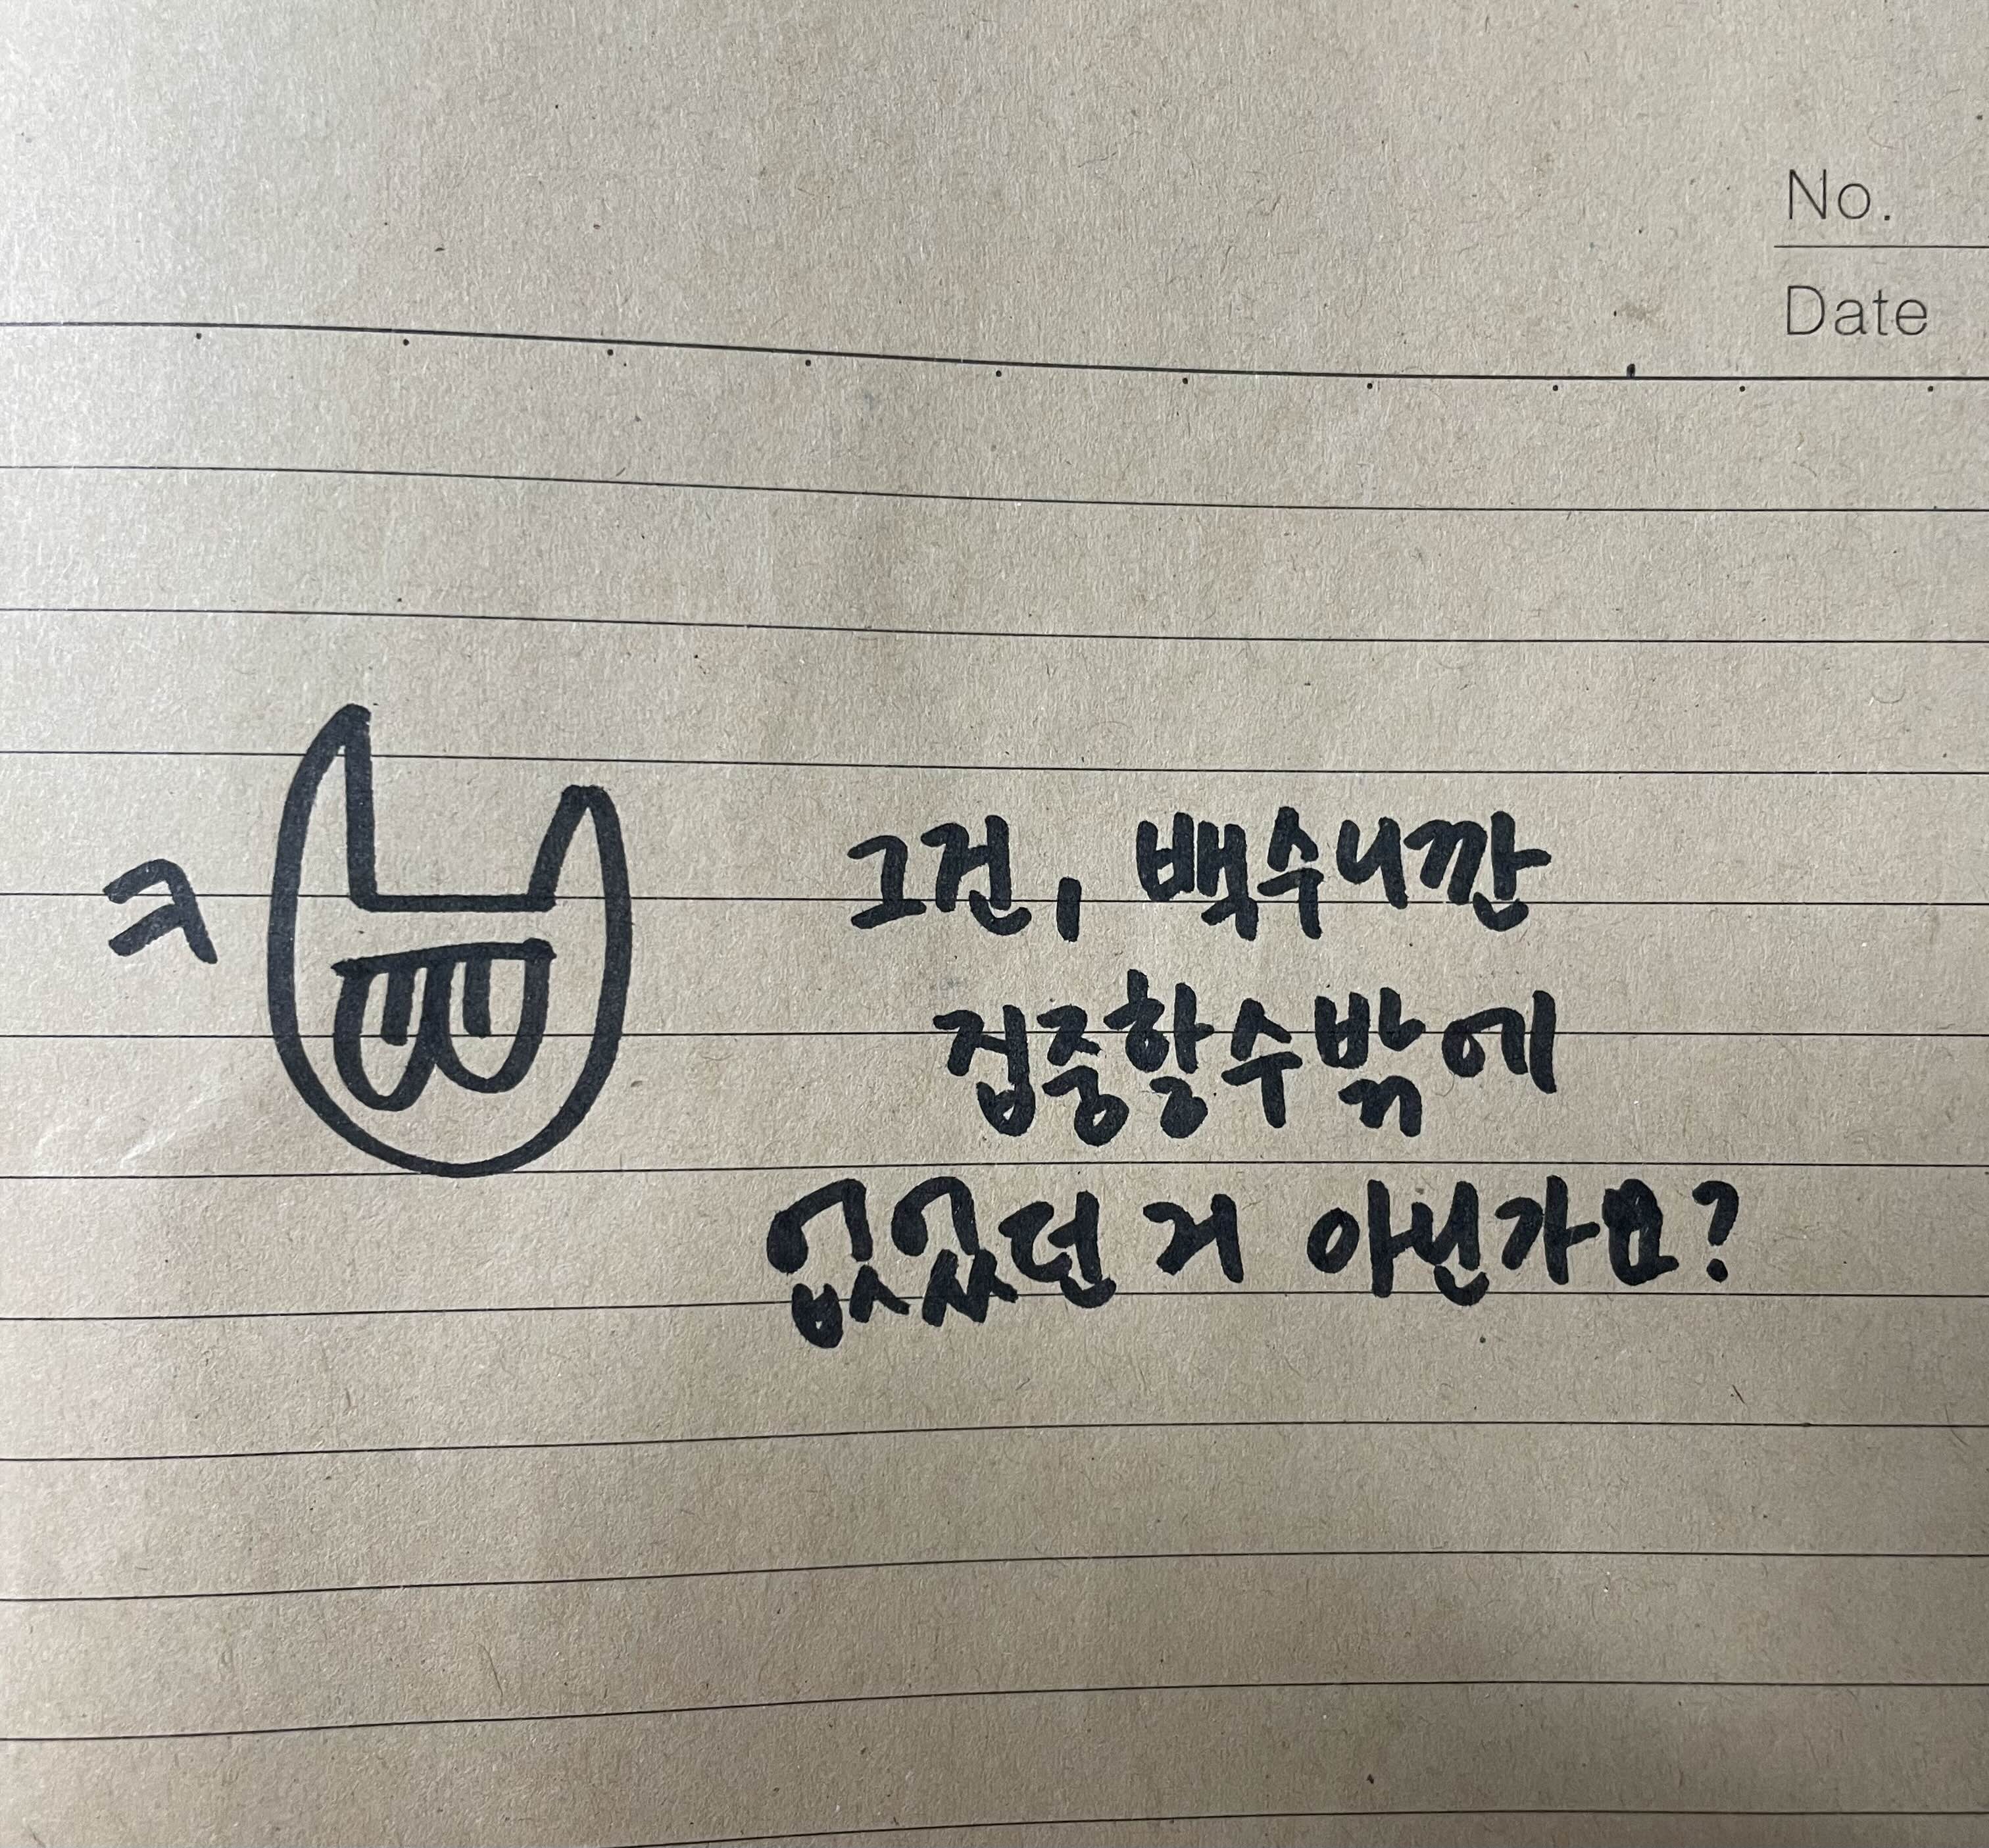 No.
Date
ㅋ
그건, 백수니깐
집중할수밖에
없었던 거 아닌가요?